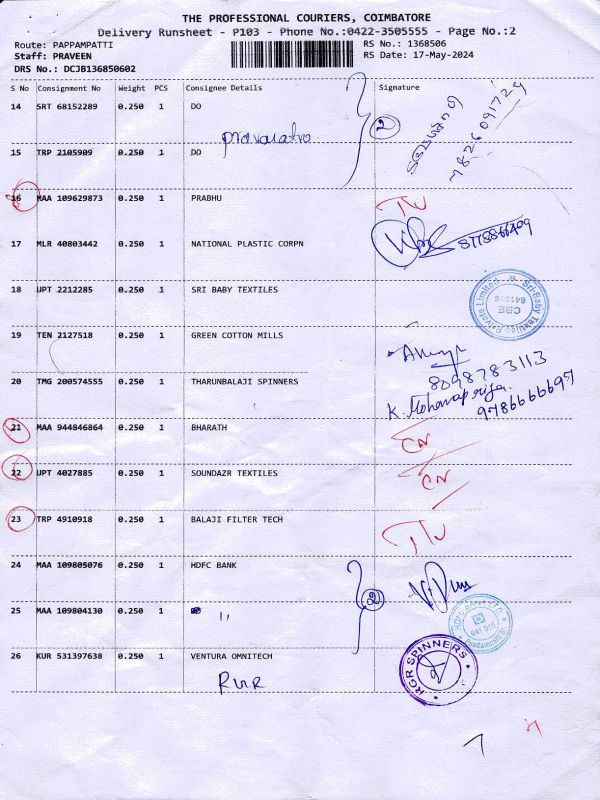 THE PROFESSIONAL COURIERS, COIMBATORE
Delivery Runsheet - P103 - Phone No.:0422-3505555 - Page No.:2
Route: PAPPAMPATTI
Staff: PRAVEEN
DRS No.: DCJB136850602
RS No.: 1368506
RS Date: 17-May-2024
S No Consignment No Weight PCS Consignee Details Signature
14 SRT 68152289 0.250 1 DO
2
15 TRP 2105909 0.250 1 DO
16 MAA 109629873 0.250 1 PRABHU
17 MLR 40803442 0.250 1 NATIONAL PLASTIC CORPN
18 UPT 2212285 0.250 1 SRI BABY TEXTILES
Sri-Baby Textiles Private Limited
CBE
19 TEN 2127518 0.250 1 GREEN COTTON MILLS
8098783113
20 TMG 200574555 0.250 1 THARUNBALAJI SPINNERS
K. Mohanapriya.
21 MAA 944846864 0.250 1 BHARATH
CN
22 UPT 4027885 0.250 1 SOUNDAZR TEXTILES
CN
23 TRP 4910918 0.250 1 BALAJI FILTER TECH
24 MAA 109805076 0.250 1 HDFC BANK
2
25 MAA 109804130 0.250 1 "
26 KUR 531397638 0.250 1 VENTURA OMNITECH
RGR SPINNERS